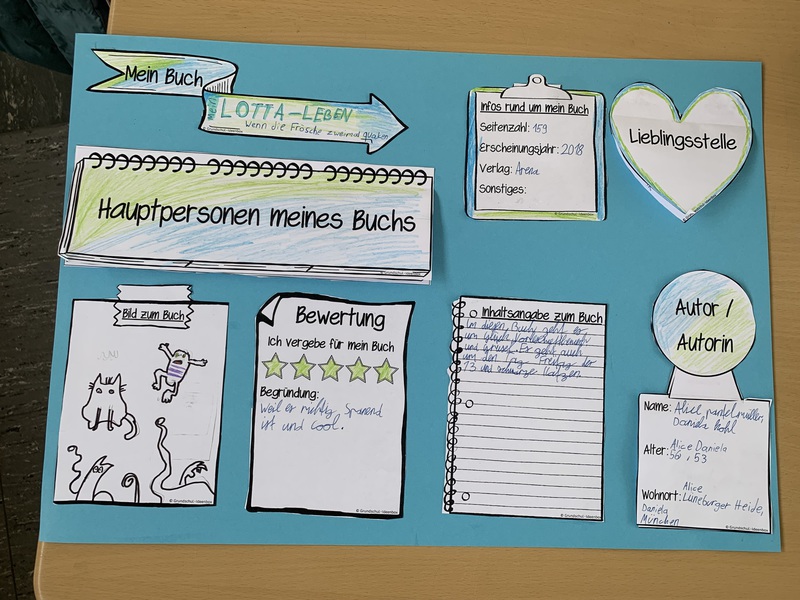 Mein Buch
Mein
LOTTA-LEBEN
Wenn die Frösche zweimal quaken
Hauptpersonen meines Buchs
Infos rund um mein Buch
Seitenzahl: 159
Erscheinungsjahr: 2018
Verlag: Arena
Sonstiges:
Lieblingsstelle
Bild zum Buch
© Grundschul-Ideenbox
Bewertung
Ich vergebe für mein Buch
Begründung:
Weil es richtig spanend
ist und cool.
© Grundschul-Ideenbox
Inhaltsangabe zum Buch
Im diesen Buch geht es
um Glück
und Es geht auch
um den Tag Freitag der
13 und schwarze Katzen
© Grundschul-Ideenbox
Autor /
Autorin
Name: Alice pantelmüller,
Daniela Kohl
Alter: Alice Daniela
56, 53
Wohnort: Alice
Lüneburger Heide,
Daniela
München